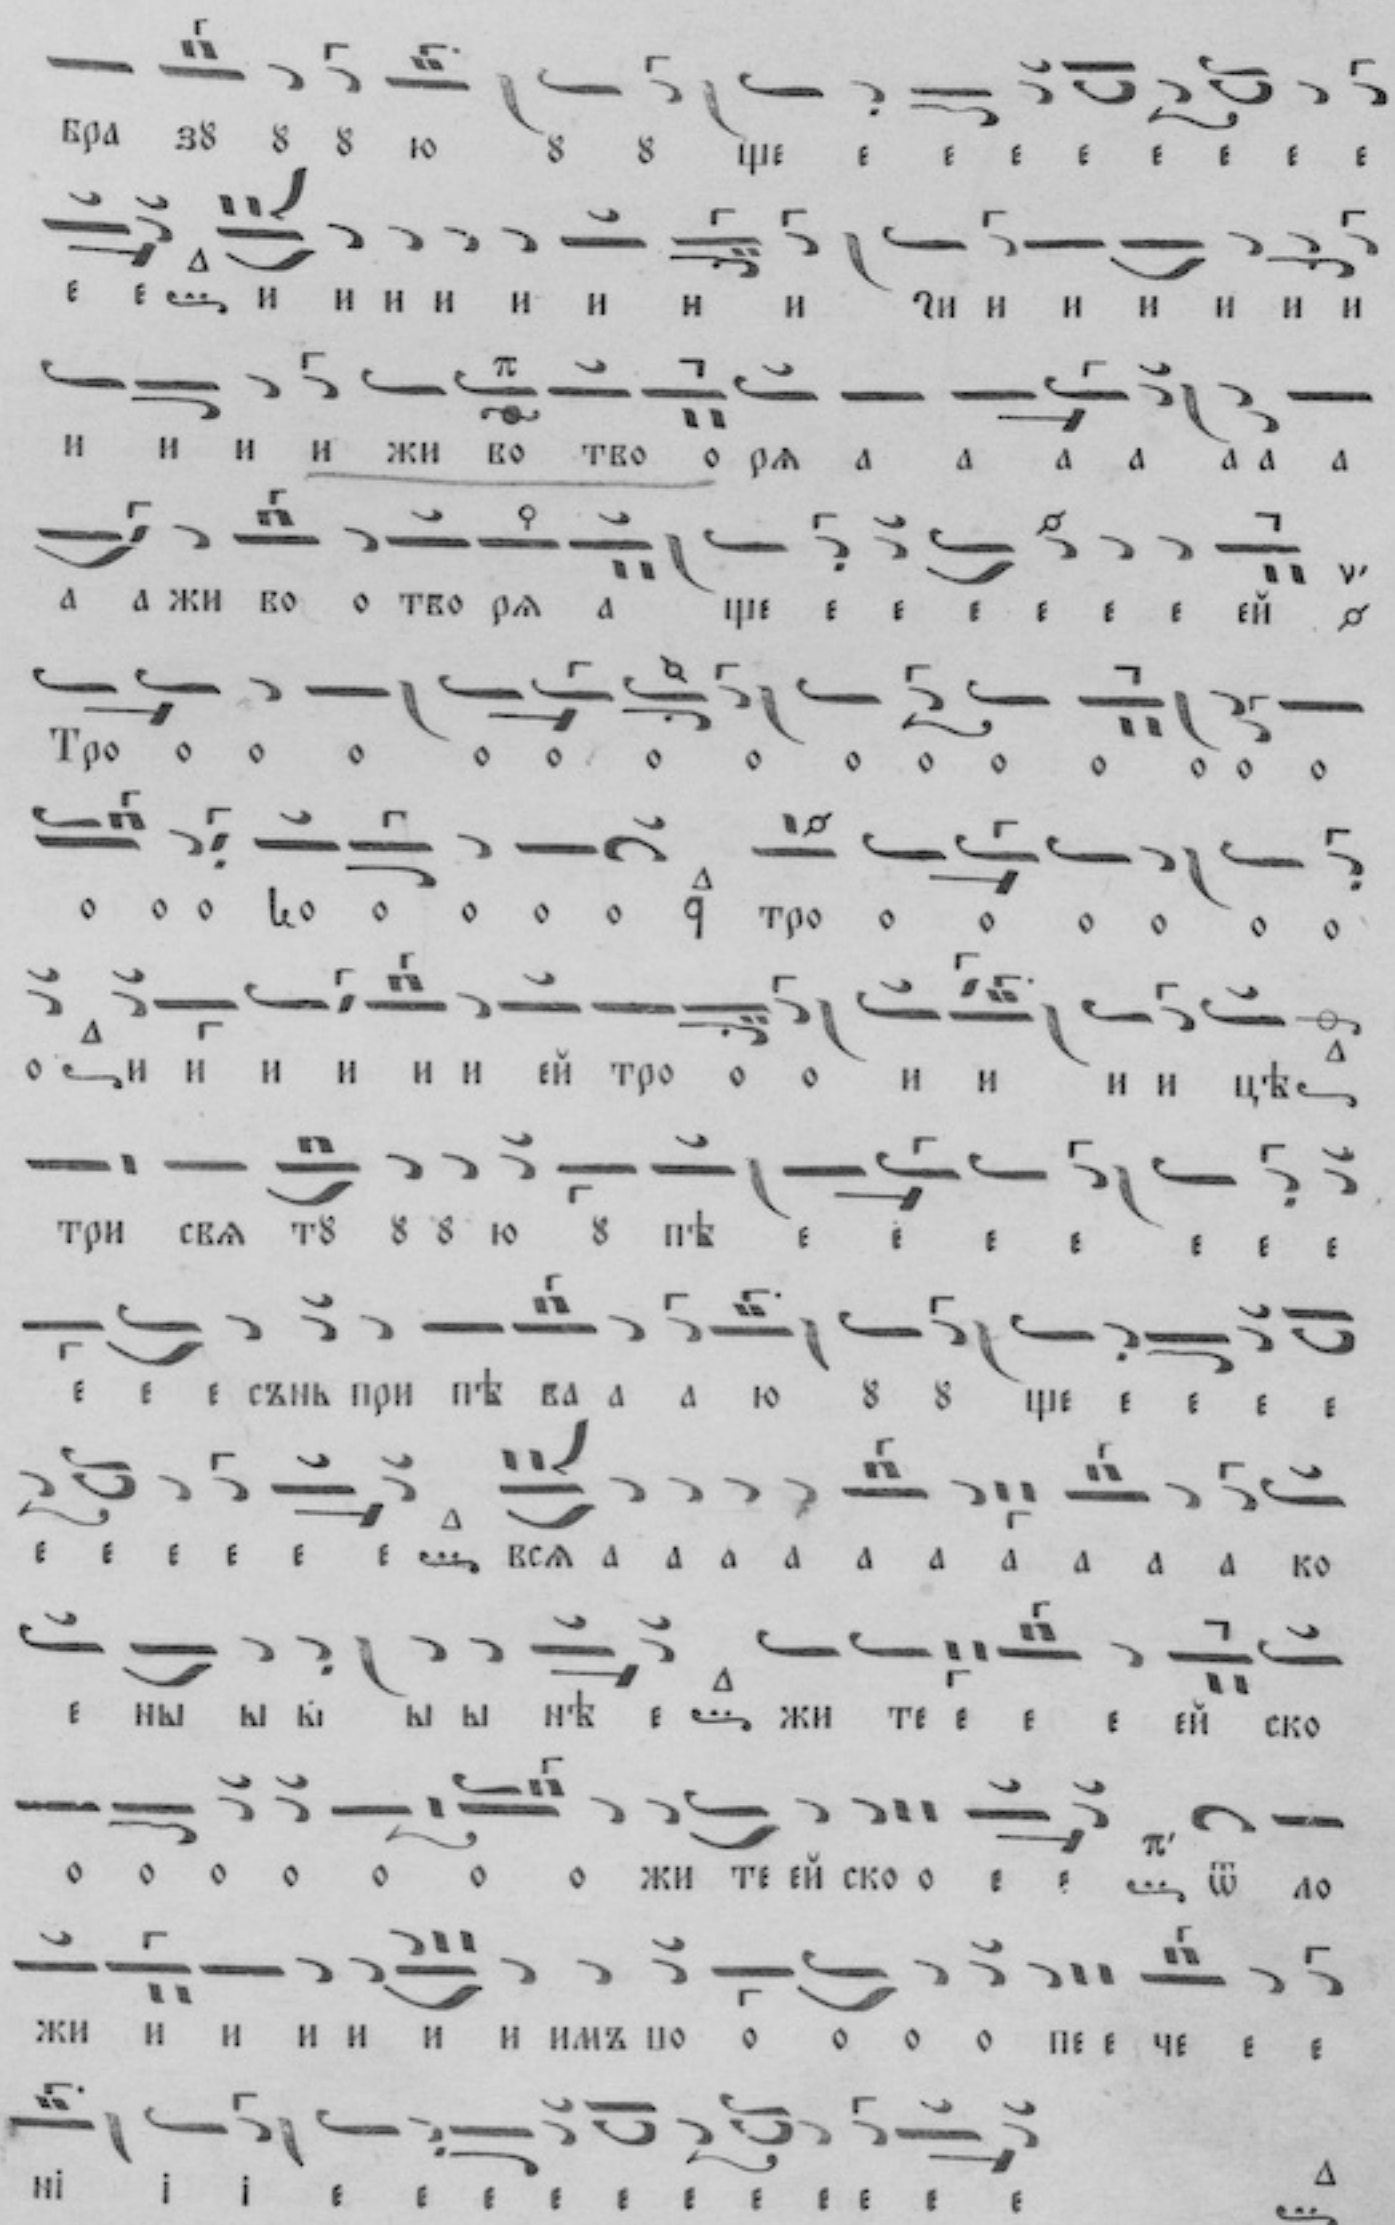 вра зꙋ ꙋ ꙋ ю ꙋ ꙋ ще е е е е е е е е
е е и и и и и и и и чи и и и и и и
и и и и жи во тво о рѧ а а а а а а а
а а жи во о тво рѧ а ще е е е е е ей
Тро о о о о о о о о о о о о о о
о о о ко о о о о тро о о о о о о
о и и и и и и ей тро о о и и и и цѣ
три свѧ тꙋ ꙋ ꙋ ю ꙋ пѣ е е е е е е е
е е е снь при пѣ ва а а ю ꙋ ꙋ ще е е е е
е е е е е е всѧ а а а а а а а а а а ко
е ны ы ы ы ы нѣ е жи те е е е ей ско
о о о о о о о жи те ей ско о е е ѿ ло
жи и и и и и и имъ по о о о о пе е че е е
ні і і е е е е е е е е е е